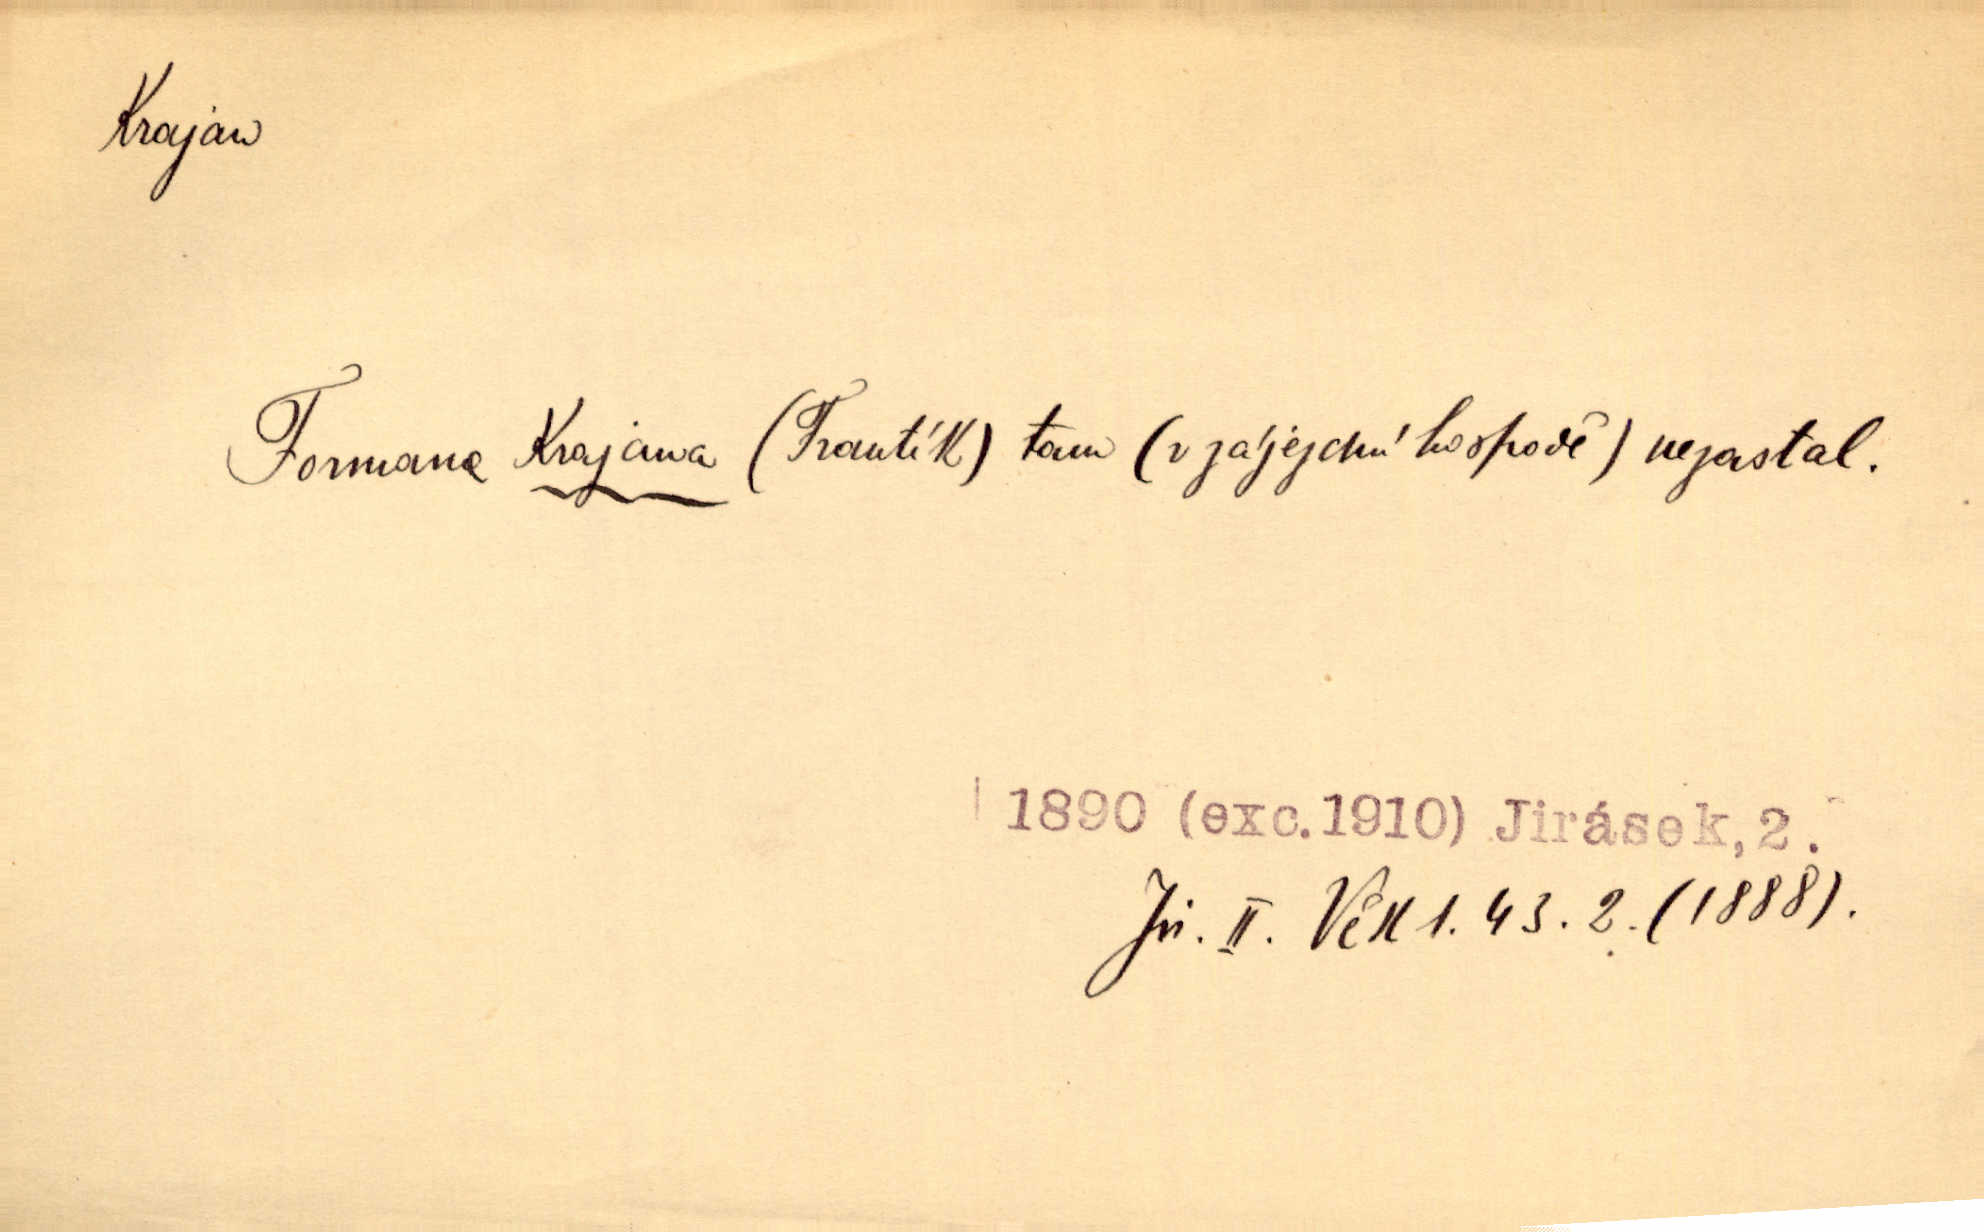 Krajan
Formana Krajana (Frantík) tam (v zájezdní hospodě) nezastal.
1890 (exc.1910) Jirásek, 2.
Jir. II. Věk 1. 43. 2. (1888).